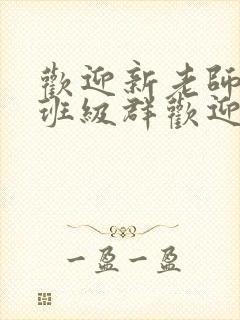 歡迎新老師
班級群歡迎
一盈一盈